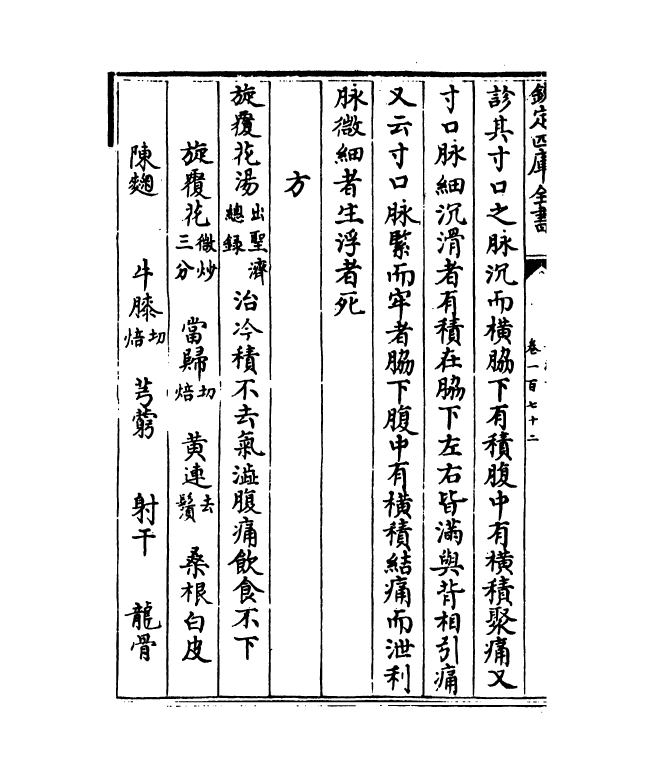 欽定四庫全書
卷一百七十二
診其寸口之脉沉而橫脇下有積腹中有橫積聚痛又
寸口脉細沉滑者有積在脇下左右皆滿與背相引痛
又云寸口脉緊而牢者脇下腹中有橫積結痛而泄利
脉微細者生浮者死
方
旋覆花湯出聖濟總錄治冷積不去氣澁腹痛飲食不下
旋覆花微炒三分 當歸切焙 黄連去鬚 桑根白皮
陳麴 牛膝切焙 芎藭 射干 龍骨